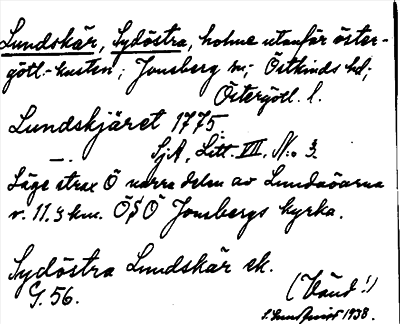 Lundskär, Sydöstra, holme utanför öster-
götl.-kusten; Jonsberg sn; Östkinds hd;
Östergötl. l.
Lundskjäret 1775.
SjA, Litt. VII, No 3.
Läge strax Ö norra delen av Lundaöarna
v. 11.3 km. ÖSÖ Jonsbergs kyrka.
Sydöstra Lundskär ek.
G. 56.
(Vänd!)
1938.